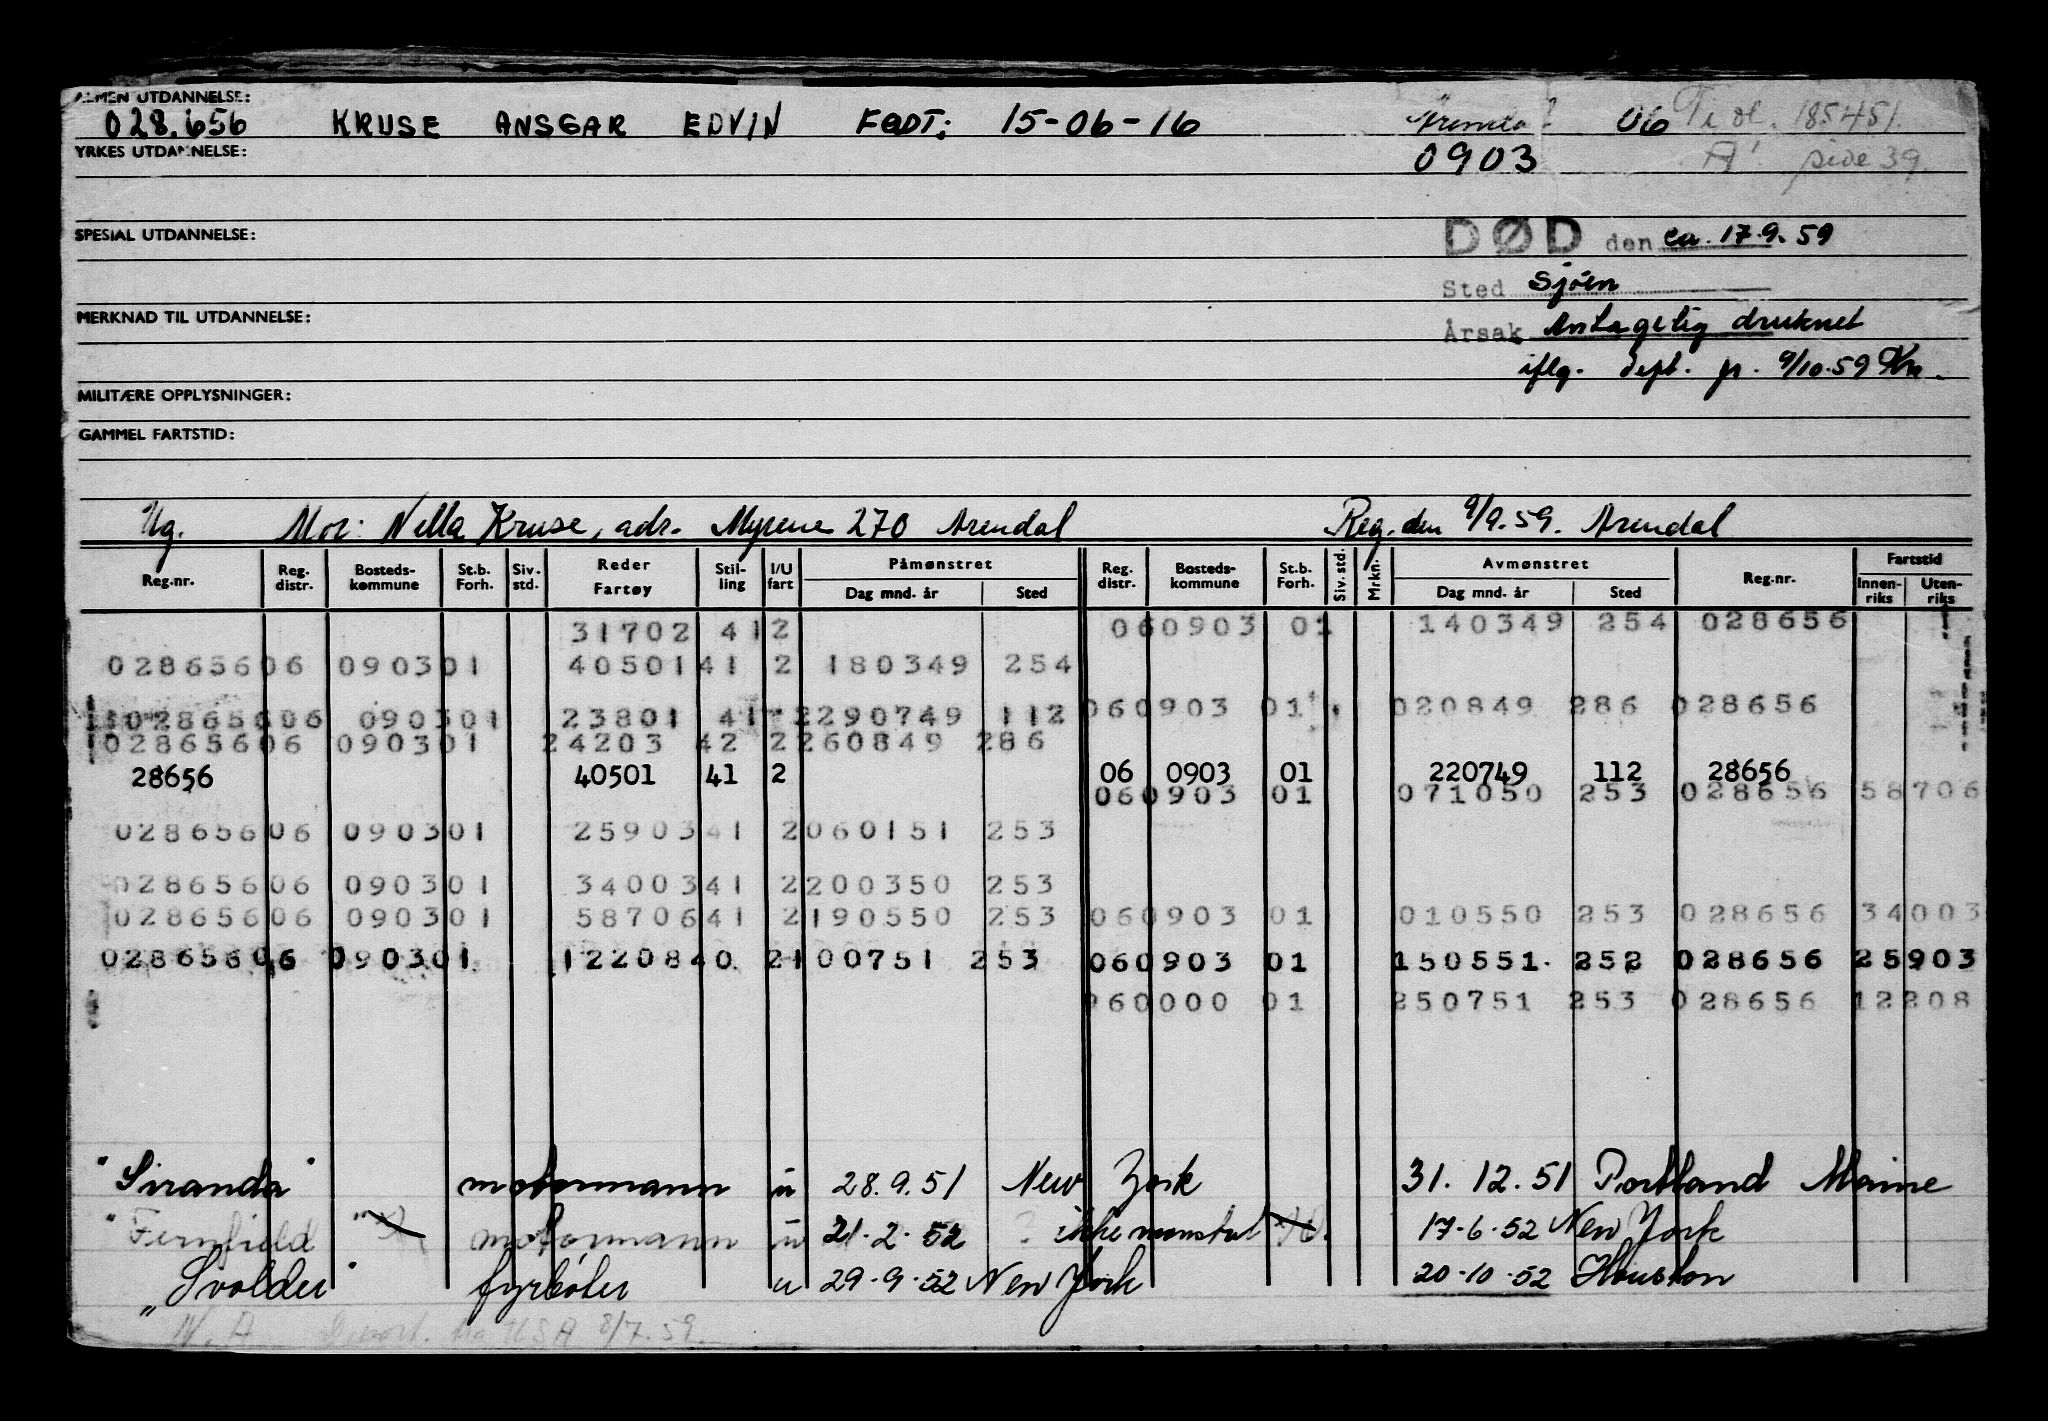 ALMEN UTDANNELSE:
028.656 KRUSE ANSGAR EDVIN FØDT: 15-06-16 06 185451.
YRKES UTDANNELSE: 0903 A side 39.
SPESIAL UTDANNELSE: DØD den ca. 17.9.59
Sted Sjøen
MERKNAD TIL UTDANNELSE: Årsak Antagelig druknet
iflg. dept. 9/10.59
MILITÆRE OPPLYSNINGER:
GAMMEL FARTSTID:
Ug. Mor: Nella Kruse, adr. Myrene 270 Arendal Reg. den 9/9.59. Arendal
Reg.nr. Reg. distr. Bosteds-kommune St.b. Forh. Siv. std. Reder Fartøy Stil-ling I/U fart Påmønstret Dag mnd. år Sted Reg. distr. Bosteds-kommune St.b. Forh. Siv. std. Mrkn. Avmønstret Dag mnd. år Sted Reg.nr. Fartstid Innen-riks Uten-riks
31702 41 2 060903 01 140349 254 028656
02865606 090301 40501 41 2 180349 254
02865606 090301 23801 41 2290749 112 060903 01 020849 286 028656
02865606 090301 24203 42 2260849 286
28656 40501 41 2 06 0903 01 220749 112 28656
060903 01 071050 253 028656 58706
02865606 090301 25903 41 2060151 253
02865606 090301 34003 41 2200350 253
02865606 090301 58706 41 2190550 253 060903 01 010550 253 028656 34003
02865606 090301 12208 40 2100751 253 060903 01 150551 252 028656 25903
060000 01 250751 253 028656 12208
"Siranda" motormann u 28.9.51 New York 31.12.51 Portland Maine
"Fernfield" motormann u 21.2.52 ? ikke mønstret 17-6-52 New York
"Svolder" fyrbøter u 29-9-52 New York 20-10-52 Houston
N.A. USA 8/7.59.